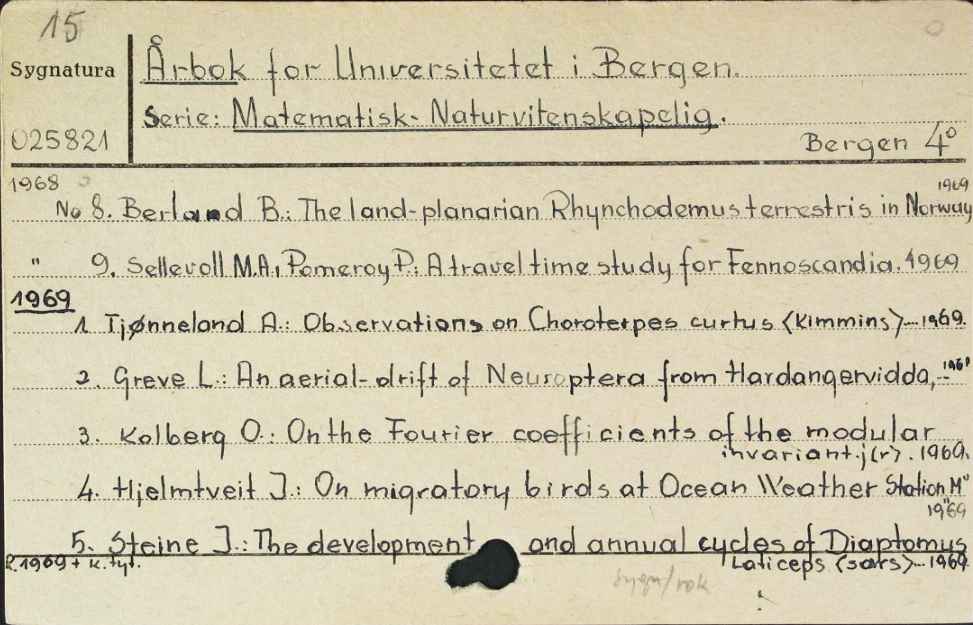 15
Sygnatura
Årbok for Universitetet i Bergen.
Serie: Matematisk- Naturvitenskapelig.
025821
Bergen 4º
1968
1969
No 8. Berland B.: The land-planarian Rhynchodemus terrestris in Norway
" 9. Sellevoll M.A., Pomeroy P.: A travel time study for Fennoscandia. 1969
1969
1. Tjønneland A.: Observations on Choroterpes curtus <Kimmins>...1969.
2. Greve L.: An aerial-drift of Neuroptera from Hardangervidda,..1969
3. Kolberg O.: On the Fourier coefficients of the modular
invariant j(r). 1969.
4. Hjelmtveit J.: On migratory birds at Ocean Weather Station M"
1969
5. Steine J.: The development and annual cycles of Diaptomus
R.1969 + k. tyt.
Laticeps <sars>...1969
sygn/rok